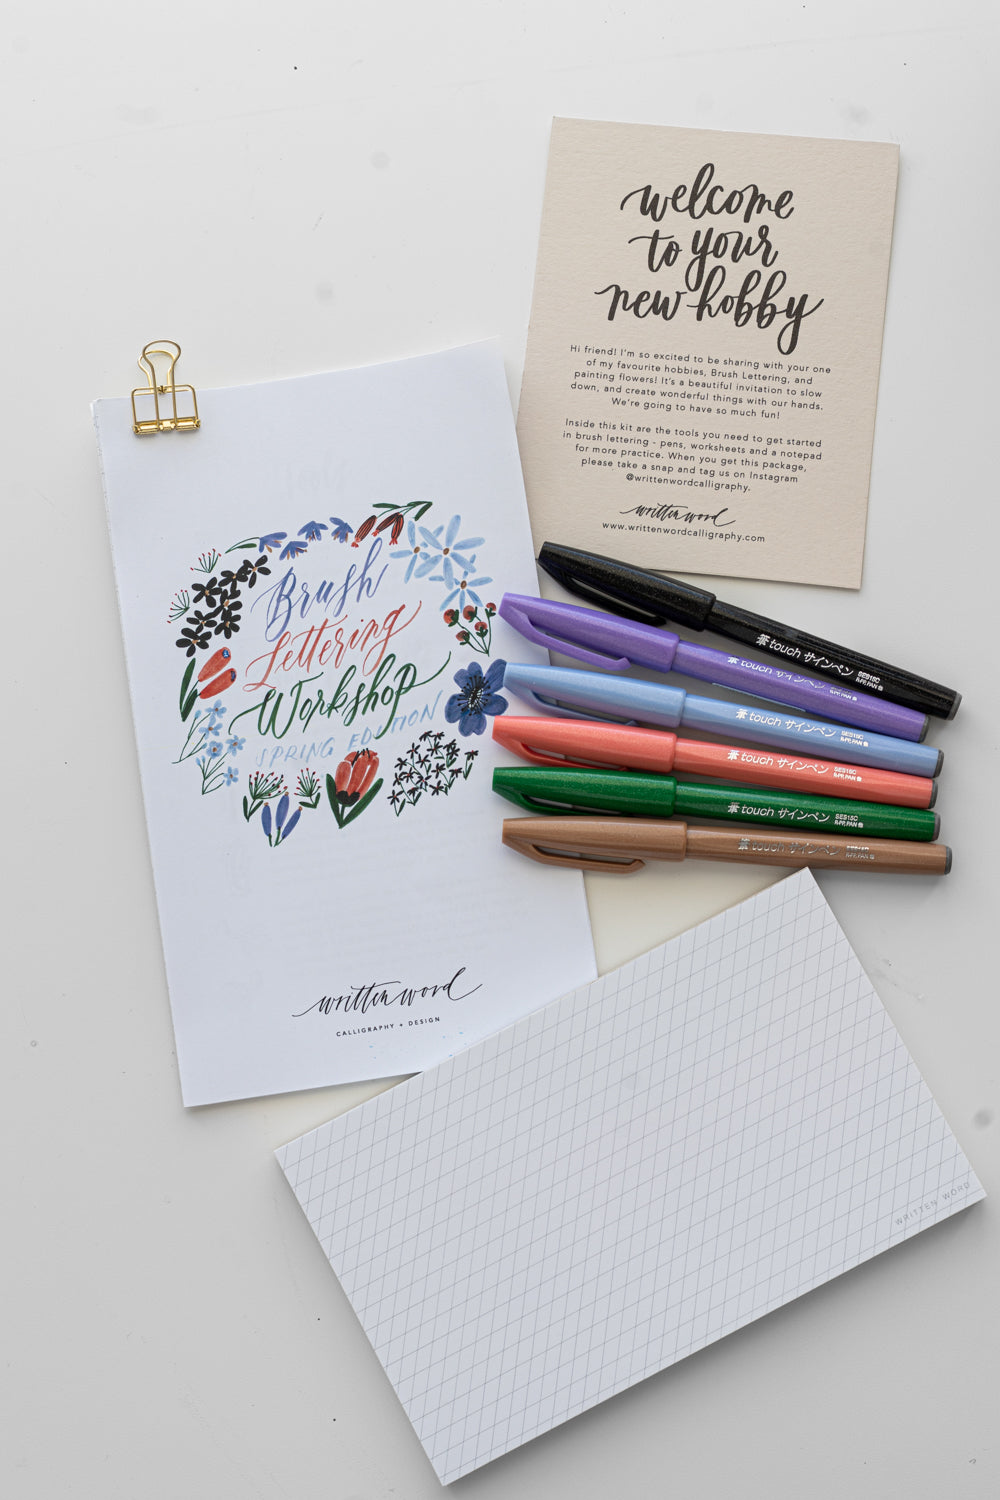 welcome
to your
new hobby
Hi friend! I'm so excited to be sharing with your one
of my favourite hobbies, Brush Lettering, and
painting flowers! It's a beautiful invitation to slow
down, and create wonderful things with our hands.
We're going to have so much fun!
Inside this kit are the tools you need to get started
in brush lettering - pens, worksheets and a notepad
for more practice. When you get this package,
please take a snap and tag us on Instagram
@writtenwordcalligraphy.
written word
www.writtenwordcalligraphy.com
Brush
Lettering
Workshop
SPRING EDITION
written word
CALLIGRAPHY + DESIGN
筆touch サインペン SES15C
R-PP, PAN
筆touch サインペン SES15C
R-PP, PAN
筆touch サインペン SES15C
R-PP, PAN
筆touch サインペン SES15C
R-PP, PAN
筆touch サインペン SES15C
R-PP, PAN
筆touch サインペン
R-PP, PAN
WRITTEN WORD